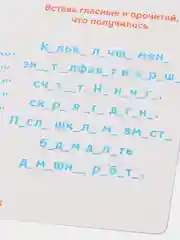 Вставь гласные и прочитай,
что получилось
К_льк_ л_чш_ мен_
зн__т _лфав_т и х_р_ш_
сч_т__т. Н_ н_ч_г_,
ск_р_ я_ д_г_н_.
П_сл_ шк_л_ м_ вм_ст_
б_д_м д_л_ть
д_м_шн__ р_б_т_.